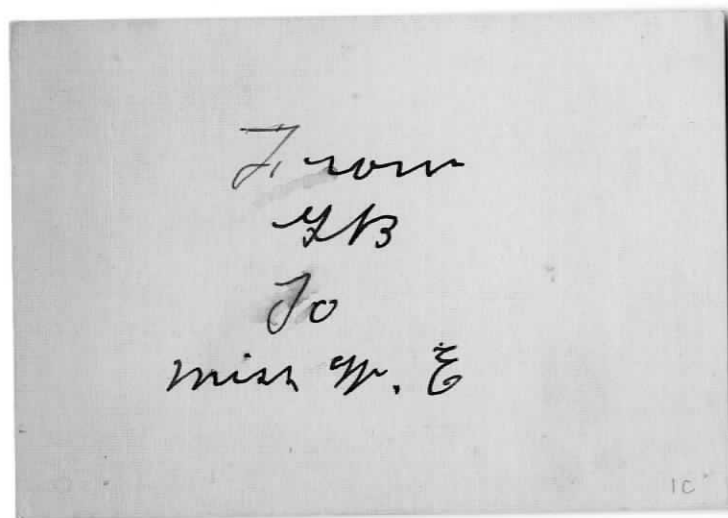 From
GB
To
miss M. E
1C